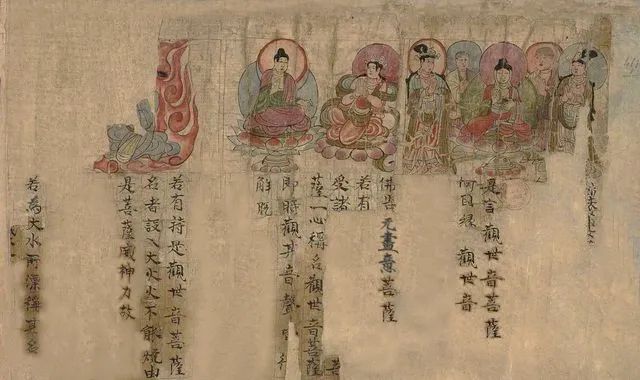 是言觀世音菩薩
何因緣 觀世音
佛告无盡意菩薩
若有
受諸 菩
薩一心稱名觀世音菩薩
即時觀其音聲
解脫
若有持是觀世音菩薩
名者設入大火火不能燒由
是菩薩威神力故
若為大水所漂稱其名